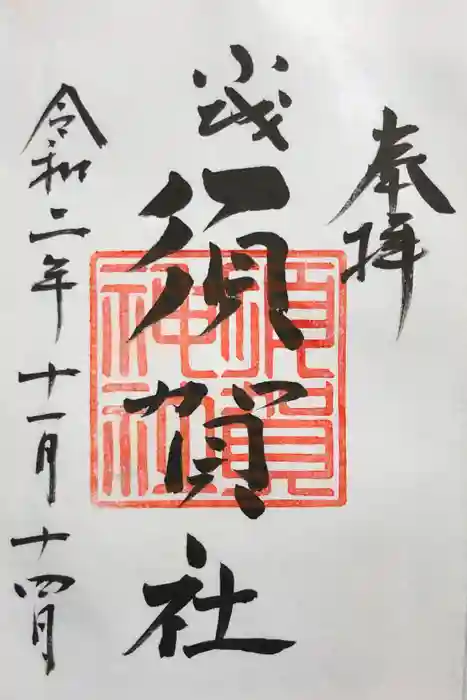 奉拝
須賀社
須賀
神社
令和二年十一月十四月